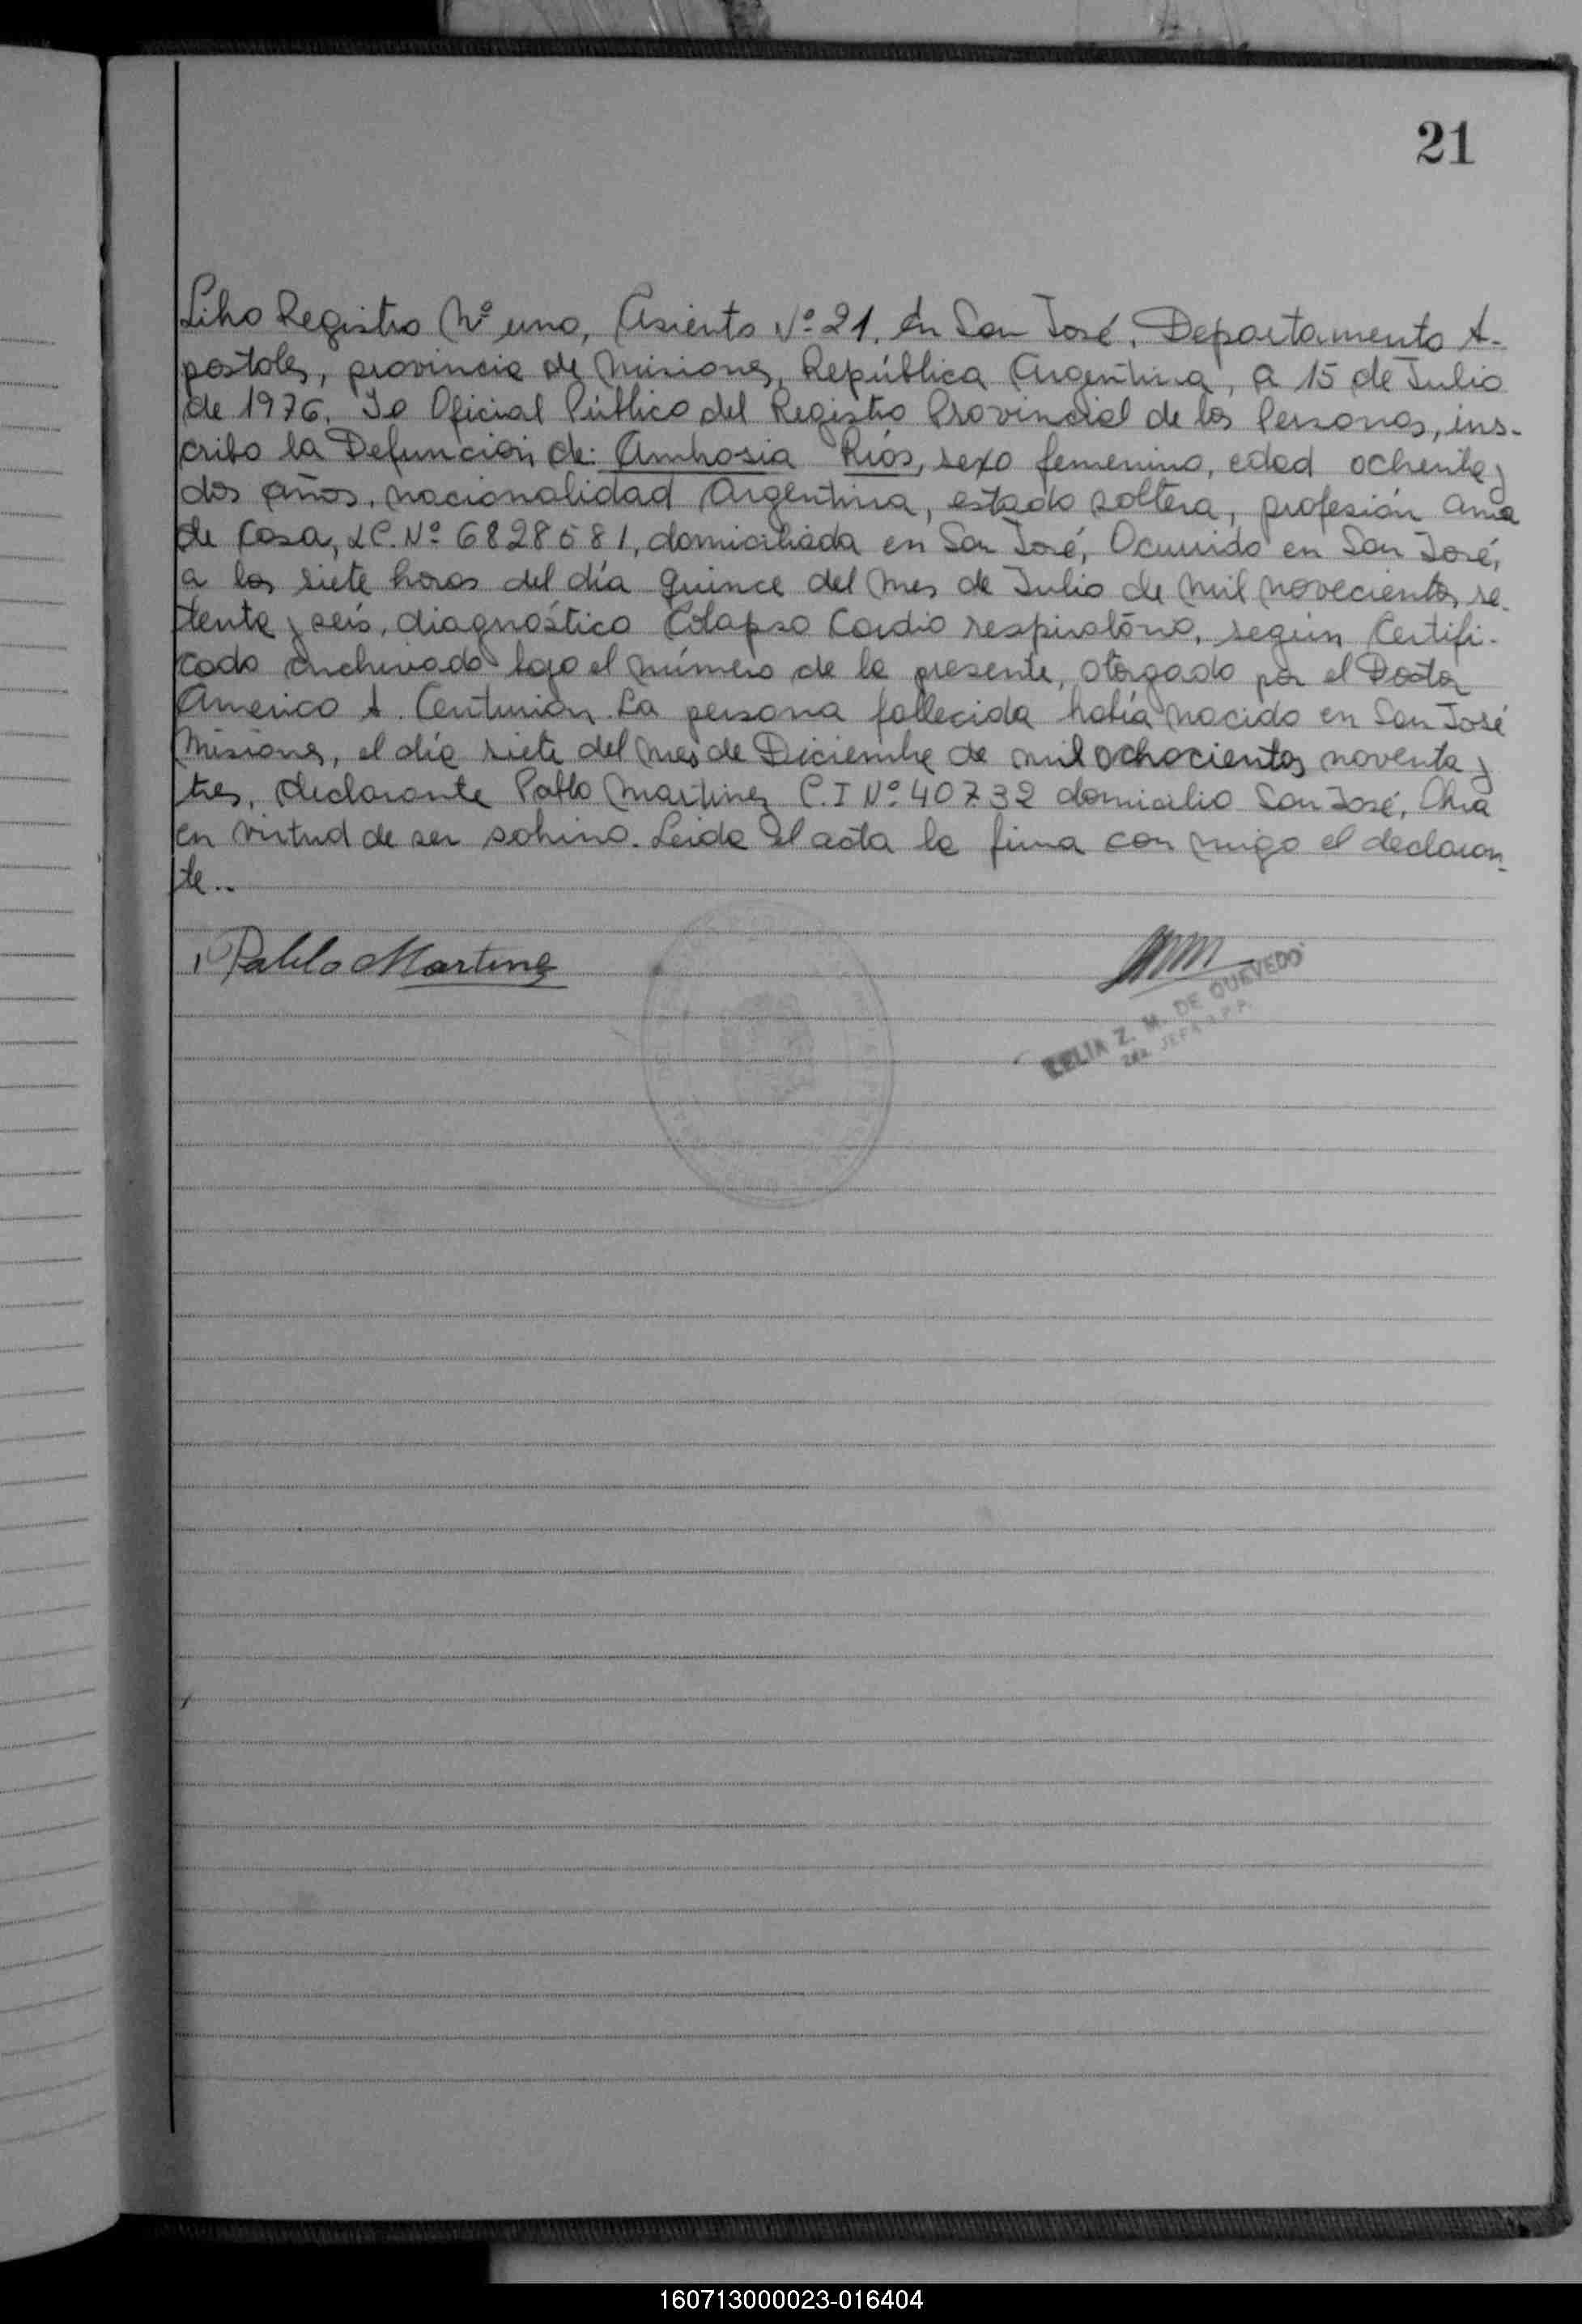 21
Libro Registro Nº uno, Asiento Nº 21. En San José, Departamento A-
postoles, provincia de Misiones, República Argentina, a 15 de Julio
de 1976. Yo Oficial Público del Registro Provincial de las Personas, ins-
cribo la Defunción de: Ambrosia Ríos, sexo femenino, edad ochenta y
dos años, nacionalidad Argentina, estado soltera, profesión ama
de casa, LC. Nº 6828581, domiciliada en San José, Ocurrido en San José,
a las siete horas del día quince del mes de Julio de mil novecientos se-
tenta y seis, diagnóstico Colapso Cardio respiratório, según Certifi-
cado archivado bajo el número de la presente, otorgado por el Doctor
Americo A. Centurión. La persona fallecida había nacido en San José
Misiones, el día siete del mes de Diciembre de mil ochocientos noventa y
tres, declarante Pablo Martinez C.I Nº 40732 domicilio San José, Obra
en virtud de ser sobrino. Leida el acta la firma con migo el declaran-
te..
Pablo Martinez
CELIA Z. M. DE QUEVEDO
JEFA R.P.P.
160713000023-016404